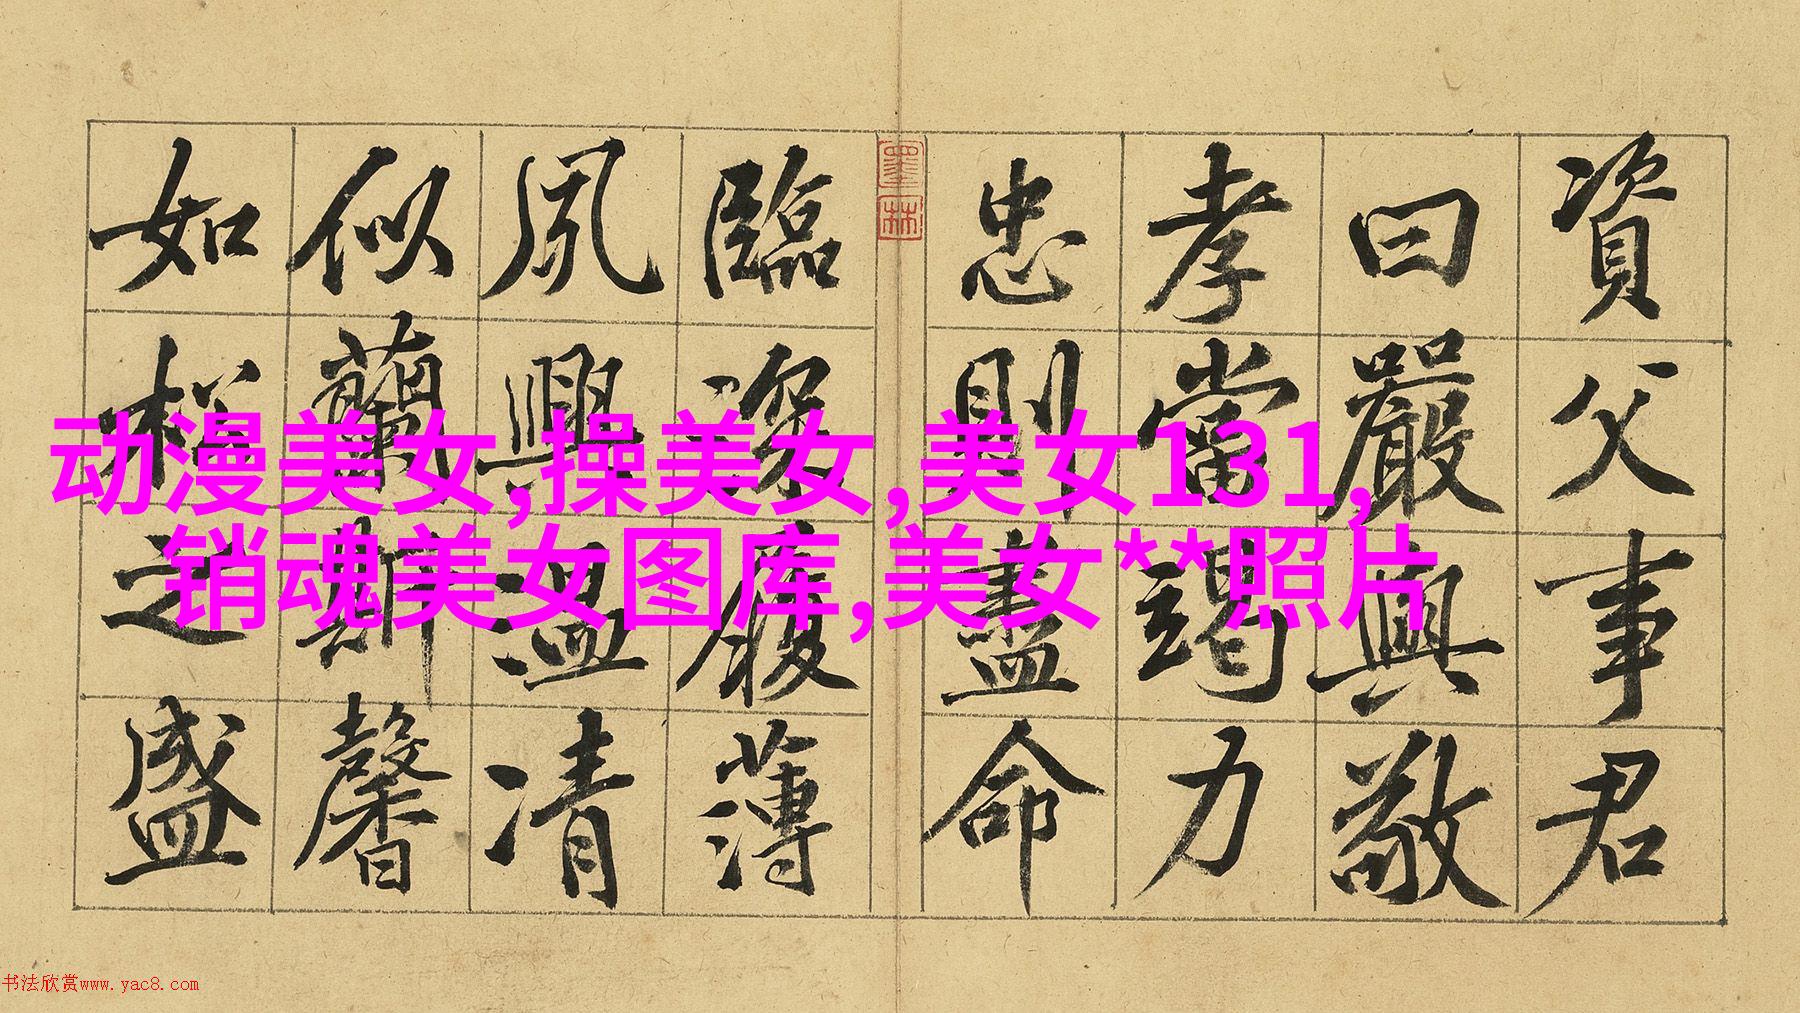 資父事君
曰嚴與敬
孝當竭力
忠則盡命
臨深履薄
夙興溫凊
似蘭斯馨
如松之盛
墨林
动漫美女,操美女,美女131,
销魂美女图库,美女**照片
书法欣赏www.yac8.com